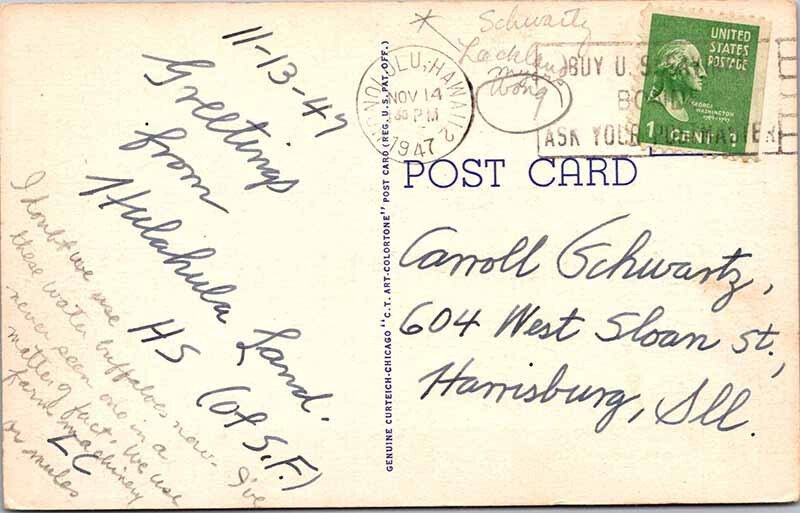 11-13-47
Greetings
from
Hulahula Land.
HS (of S.F.)
LC
I doubt we use
these water buffaloes now - I've
never seen one in a
matter of fact. We use
farm machinery
or mules
GENUINE CURTEICH-CHICAGO "C.T. ART-COLORTONE" POST CARD (REG. U.S. PAT. OFF.)
* Schwartz
Lackland
Wong
HONOLULU, HAWAII 2
NOV 14
30 PM
1947
BUY U.S.
BONDS
ASK YOUR POSTMASTER
UNITED
STATES
POSTAGE
GEORGE
WASHINGTON
1 CENT 1
POST CARD
Carroll Schwartz,
604 West Sloan St.,
Harrisburg, Ill.